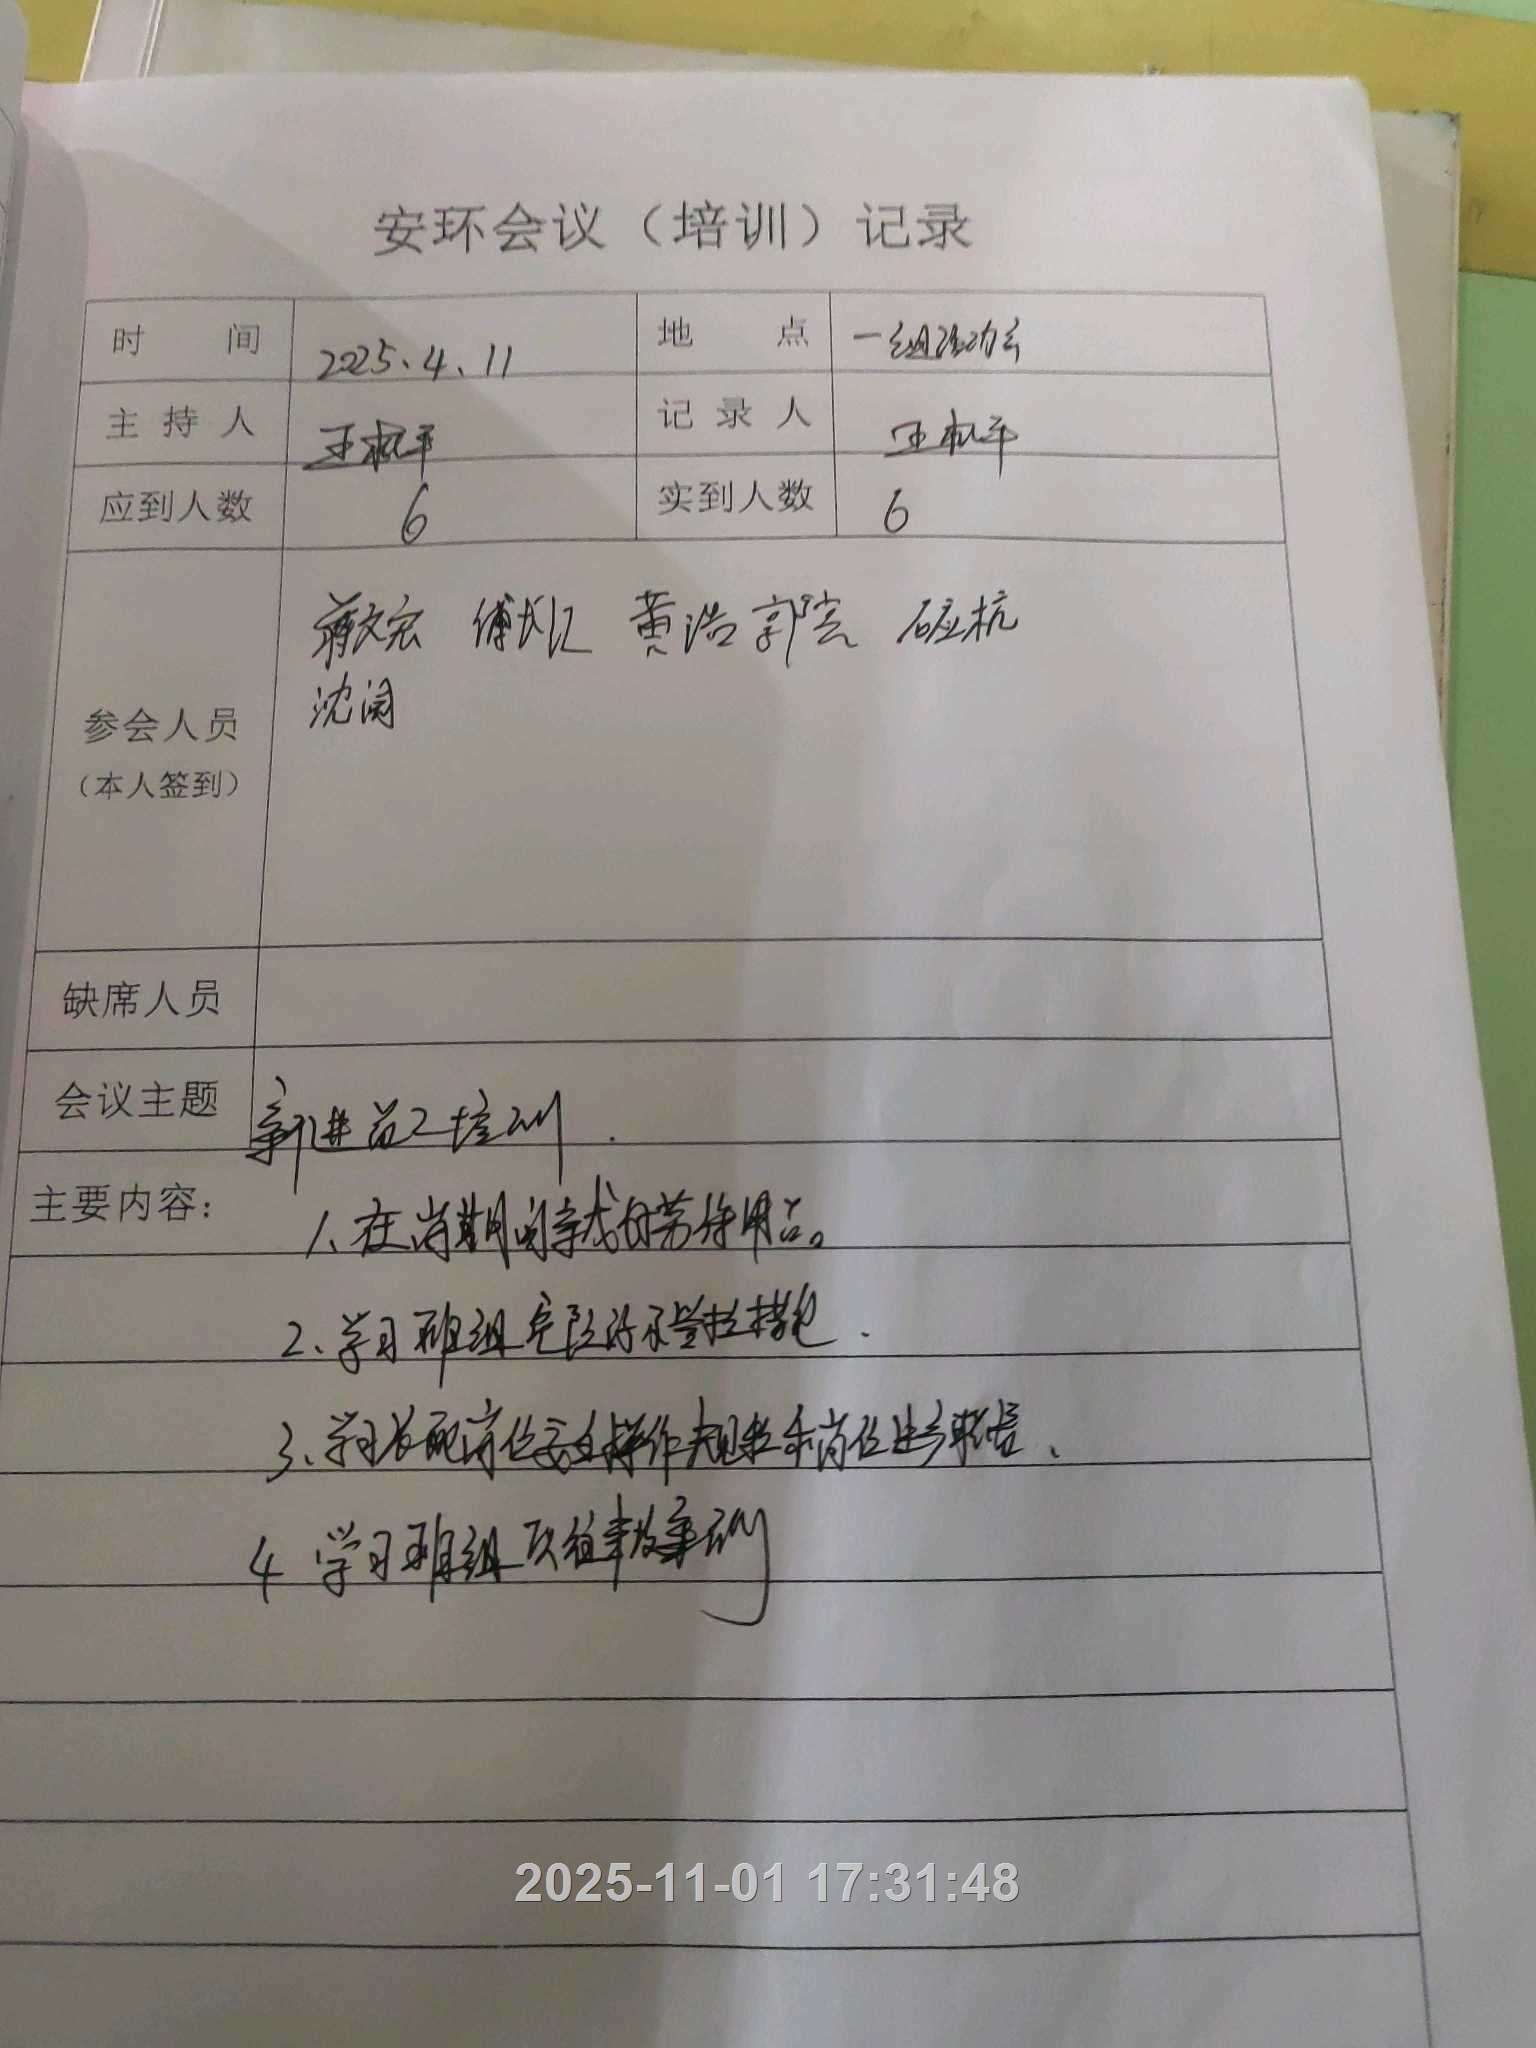 安环会议（培训）记录
时 间 2025、4、11 地 点 一组活动室
主 持 人 王 平 记 录 人 王 平
应到人数 6 实到人数 6
蒋文宏 傅 黄浩 郭 杭
沈
参会人员
（本人签到）
缺席人员
会议主题 新进员工培训.
主要内容： 1、在岗期间 劳保用品。
2、学习班组危险 措施.
3、学习 岗位安全操作规程和岗位 、
4 学习班组以往事故
2025-11-01 17:31:48